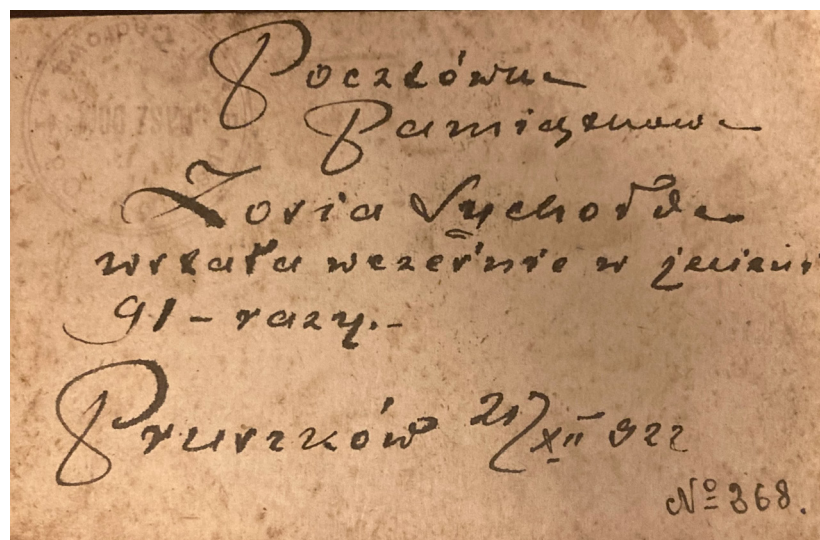 Pocztówka
Pamiątkowa
Zosia Suchorda
wstała wcześnie w jesieni
91 - razy. -
Pruszków 21/XII 922
№ 368.